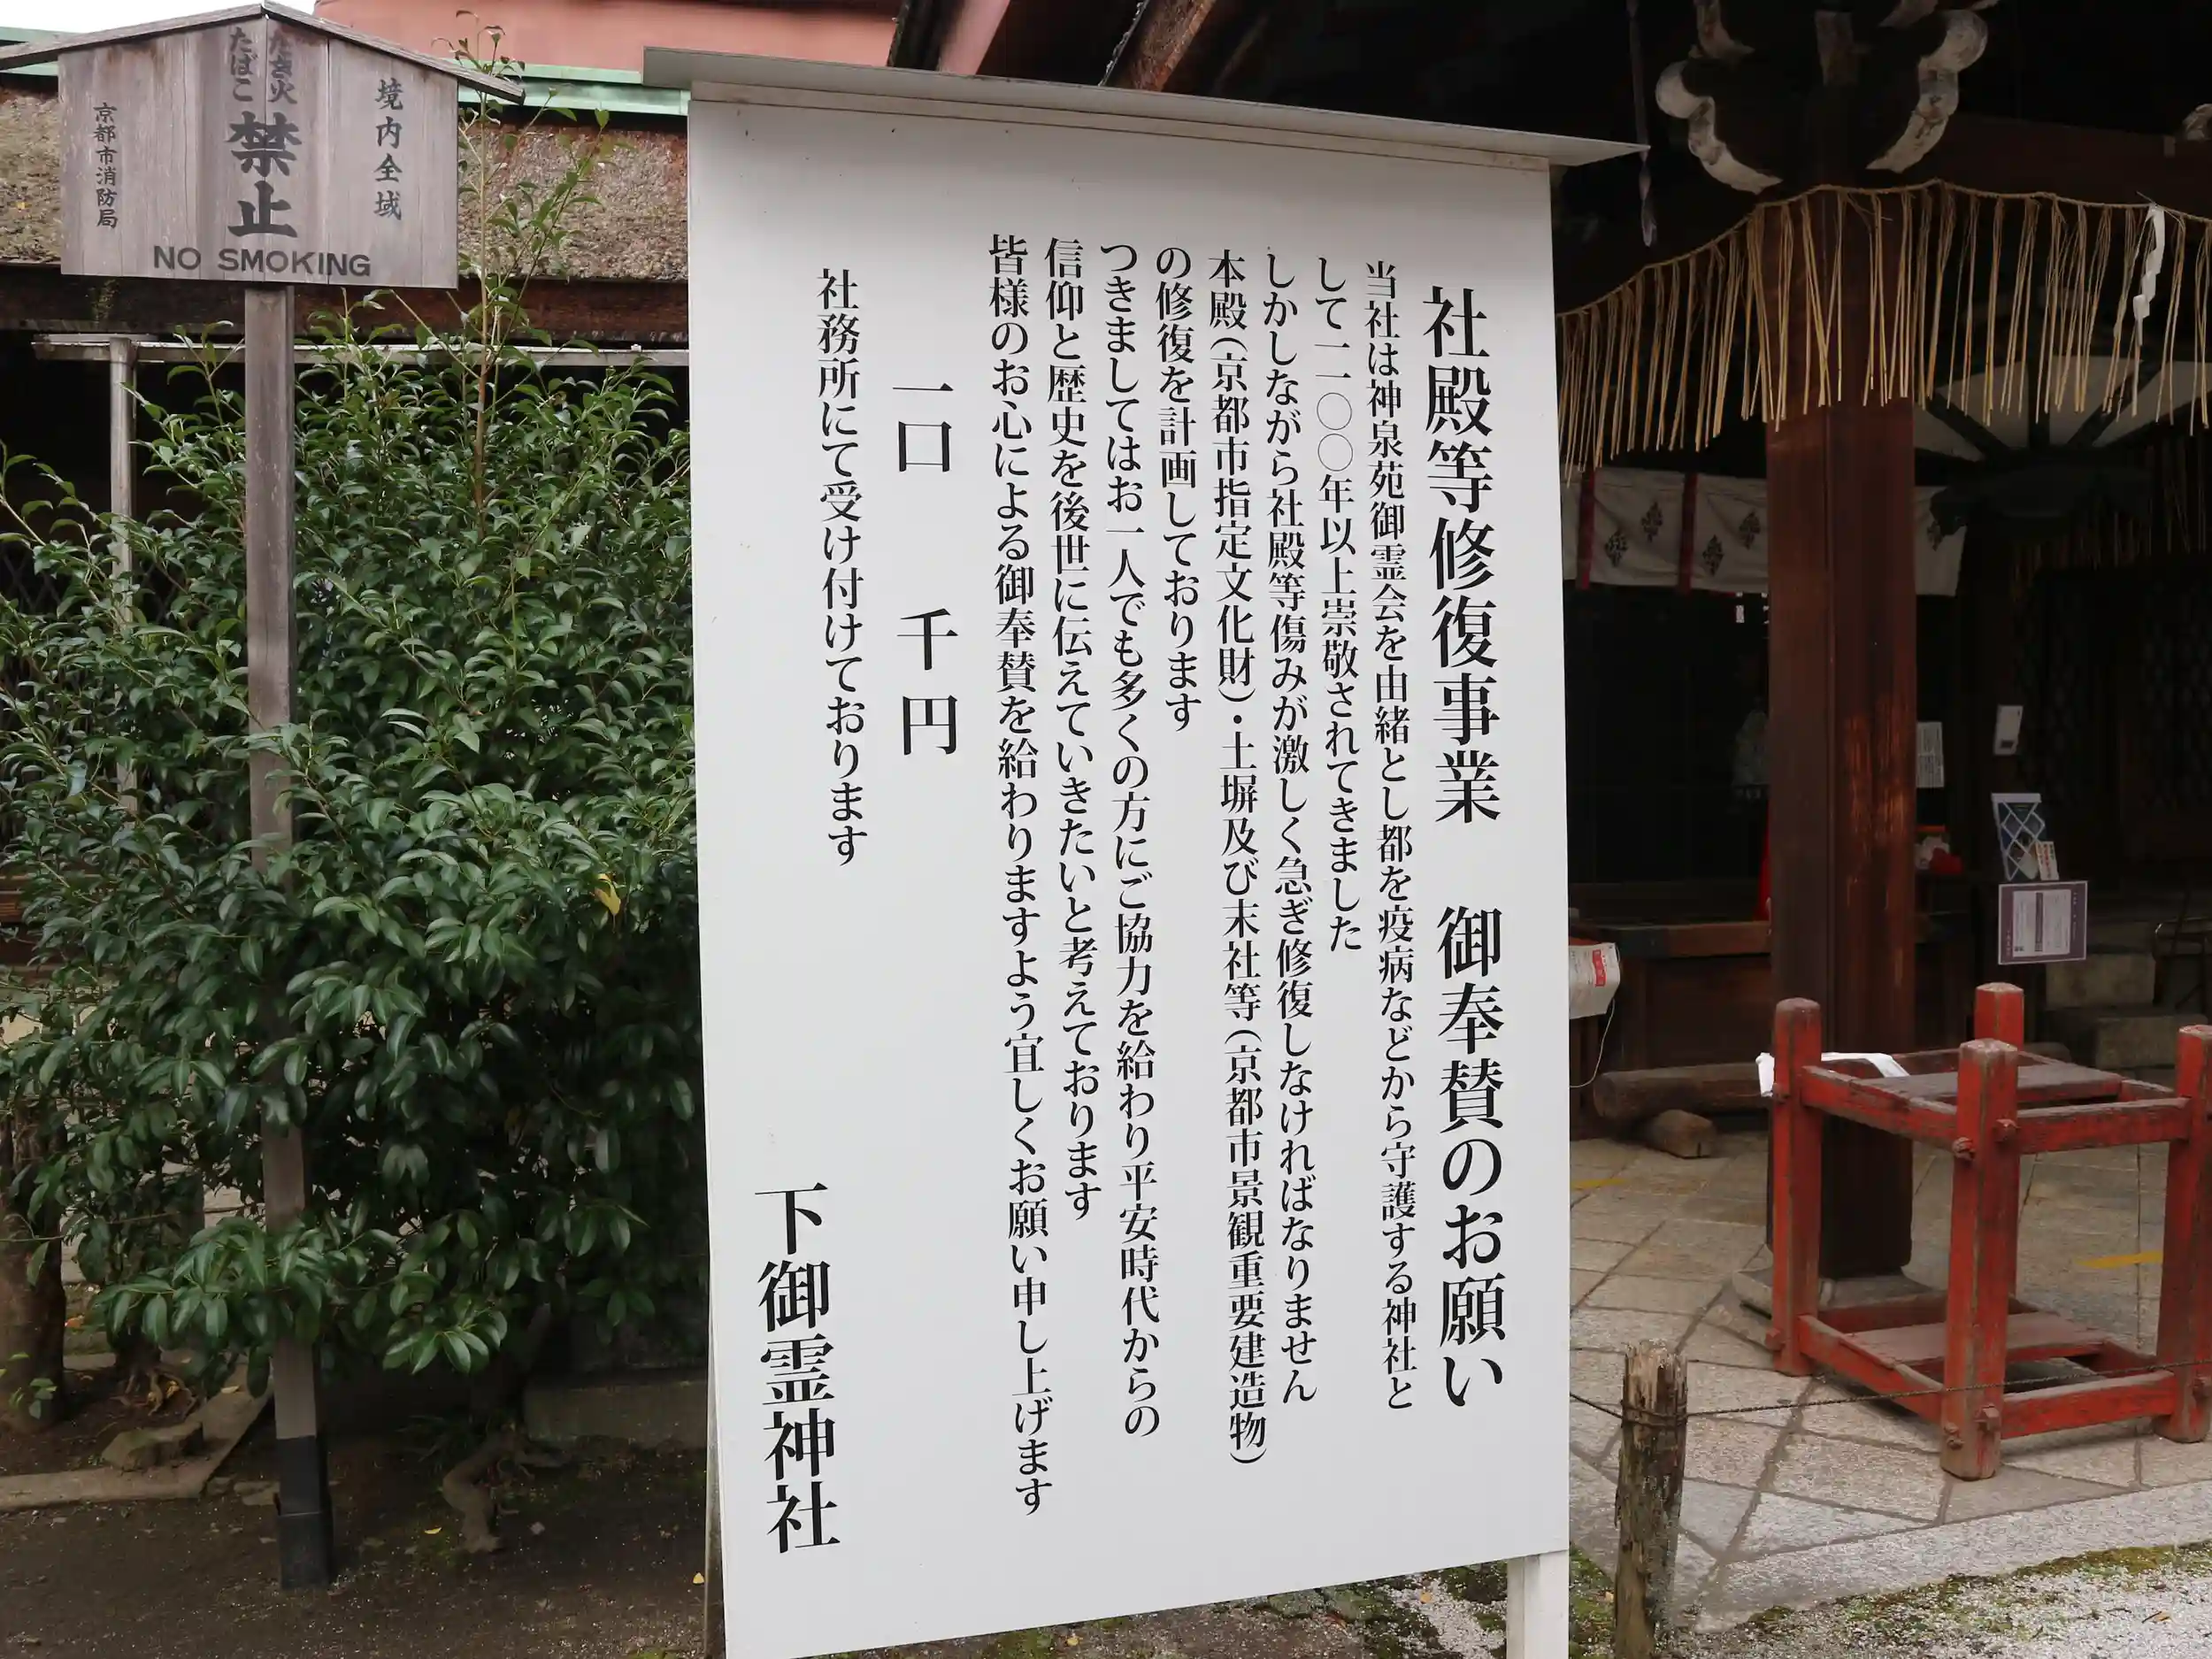 社殿等修復事業　御奉賛のお願い
当社は神泉苑御霊会を由緒とし都を疫病などから守護する神社と
して一二〇〇年以上崇敬されてきました
しかしながら社殿等傷みが激しく急ぎ修復しなければなりません
本殿（京都市指定文化財）・土塀及び末社等（京都市景観重要建造物）
の修復を計画しております
つきましてはお一人でも多くの方にご協力を給わり平安時代からの
信仰と歴史を後世に伝えていきたいと考えております
皆様のお心による御奉賛を給わりますよう宜しくお願い申し上げます
一口　千円
社務所にて受け付けております
下御霊神社
境内全域
たき火
たばこ
禁止
京都市消防局
NO SMOKING